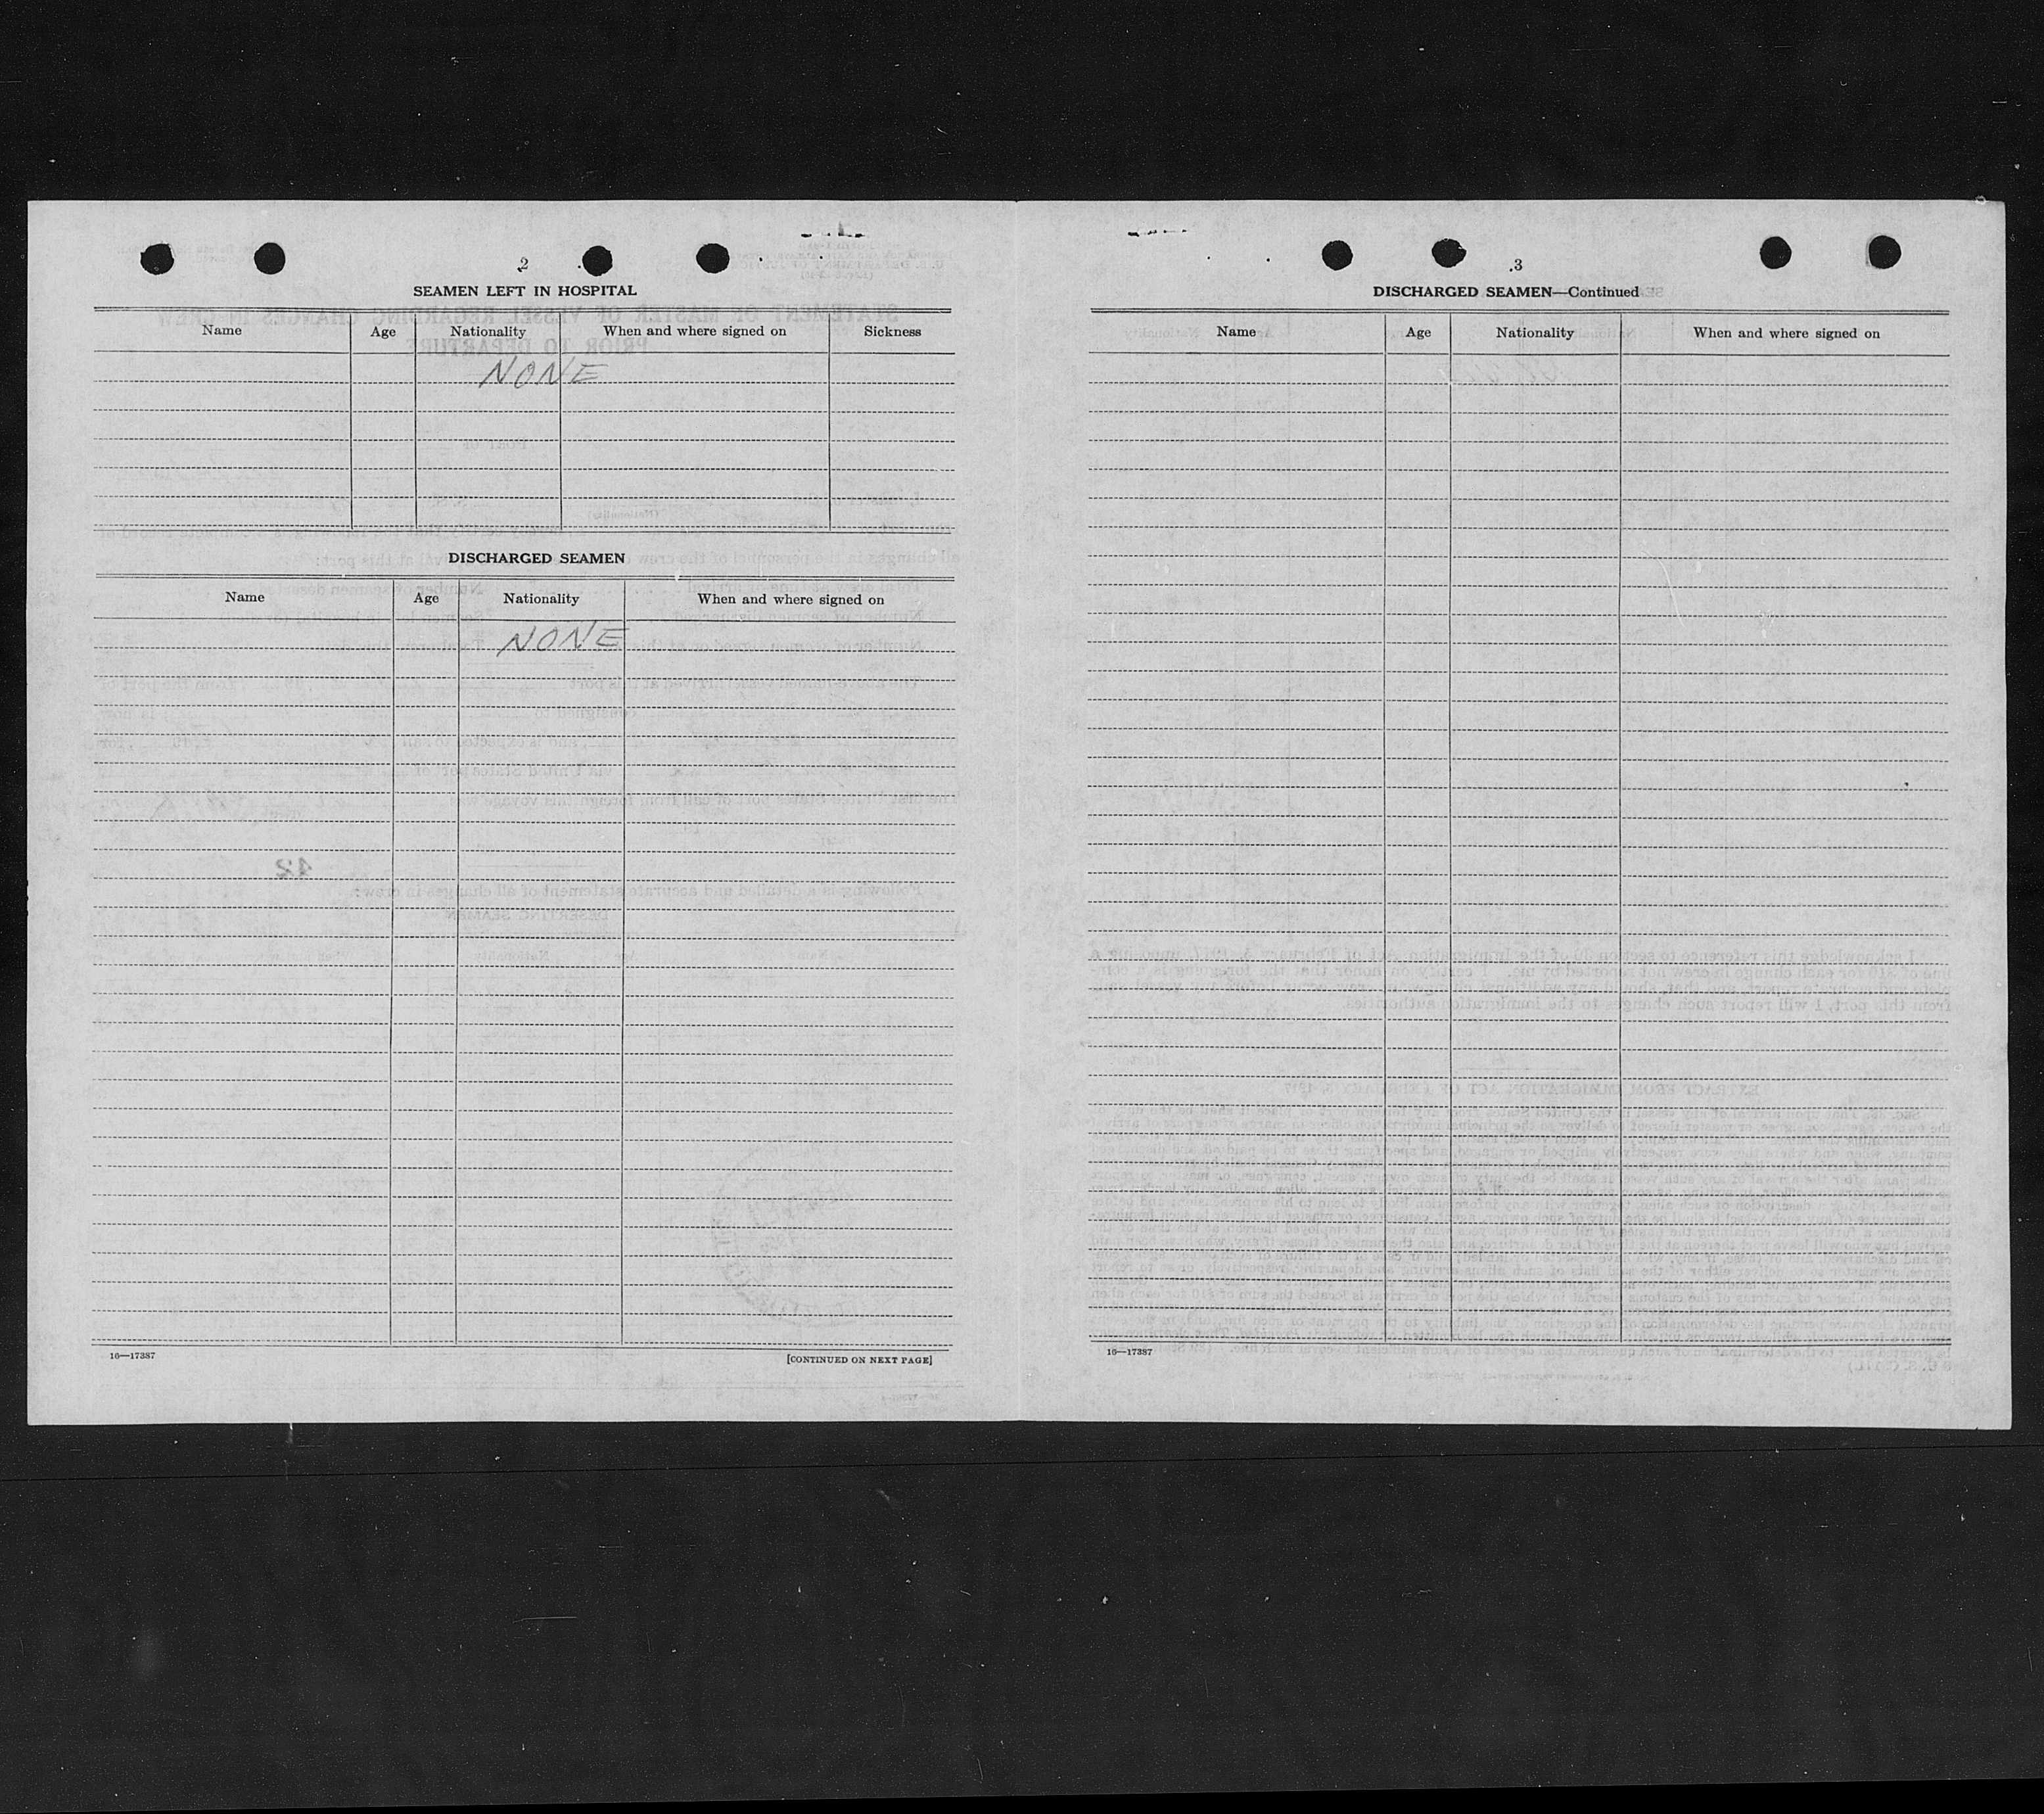 2
SEAMEN LEFT IN HOSPITAL
Name Age Nationality When and where signed on Sickness
NONE
DISCHARGED SEAMEN
Name Age Nationality When and where signed on
NONE
16—17387 [CONTINUED ON NEXT PAGE]
3
DISCHARGED SEAMEN—Continued
Name Age Nationality When and where signed on
16—17387